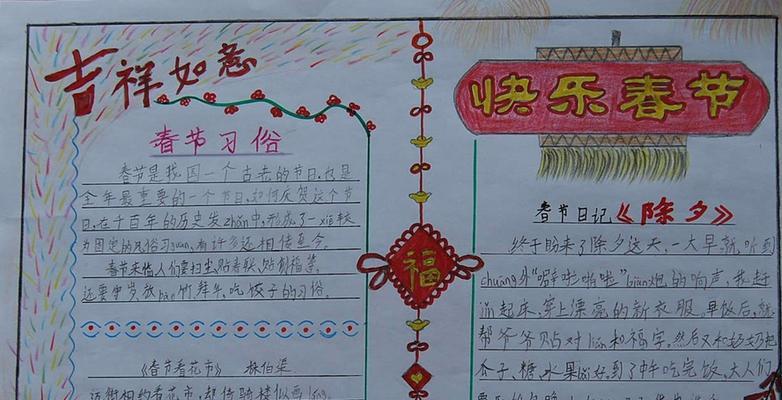 吉祥如意
春节习俗
春节是我国一个古老的节日,也是
全年最重要的一个节日,如何庆贺这个节
日,在千百年的历史发zhǎn中,形成了一xiē较
为固定的风俗习guàn,有许多还相传至今。
春节来临人们要扫尘贴春联,贴
还要守岁放bào竹,拜年,吃饺子的习俗。
《春节看花市》 林伯渠
迈街相约看花市,却倚骑楼似画
福
快乐春节
春节日记《除夕》
终于盼来了除夕这天,一大早就听到
chuāng外“噼啦啪啦”biān炮的响声,我赶
jǐn起床,穿上漂亮的新衣服。早饭后,就
帮爷爷贴对lián和福字,然后又和奶奶把
瓜子、糖、水果
到了中午吃完饭,大人们